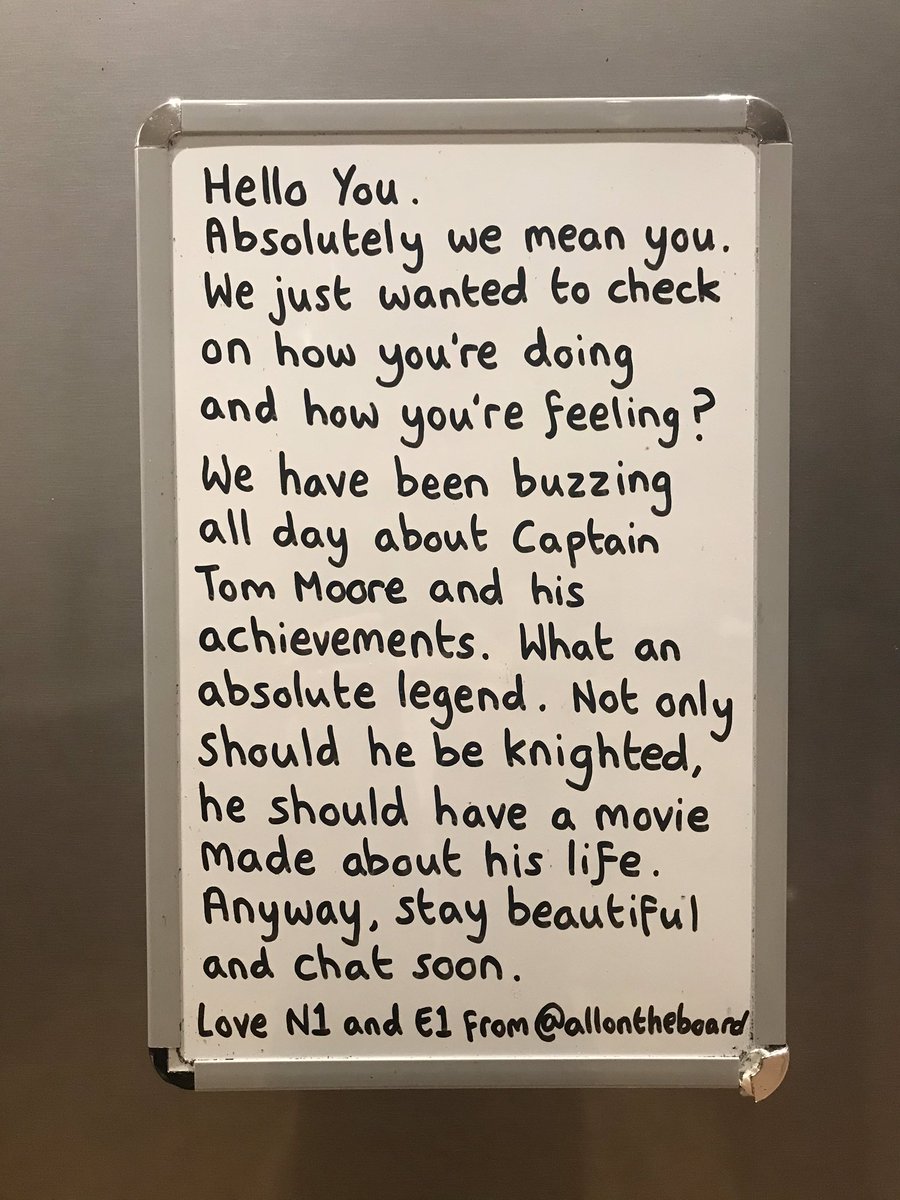 Hello You.
Absolutely we mean you.
We just wanted to check
on how you're doing
and how you're feeling?
We have been buzzing
all day about Captain
Tom Moore and his
achievements. What an
absolute legend. Not only
should he be knighted,
he should have a movie
made about his life.
Anyway, stay beautiful
and chat soon.
Love N1 and E1 from @allontheboard